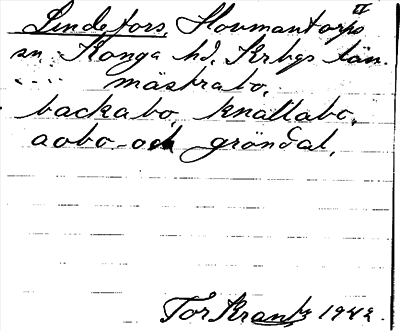 Lindefors, Hovmantorps
sn Konga hd. Krbgs län.
mästrabo,
backabo, knallabo,
aobo och gröndal,
Tor Krantz 1942.